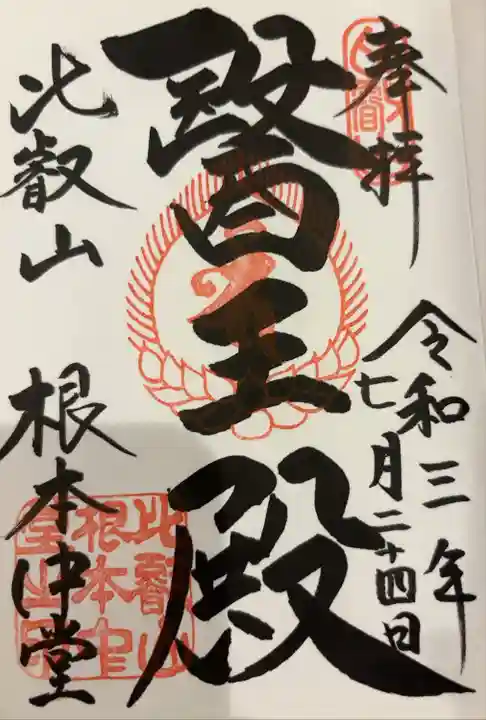 奉拝
令和三年
七月二十四日
醫王殿
比叡山
根本中堂
比叡山
根本中
堂山印